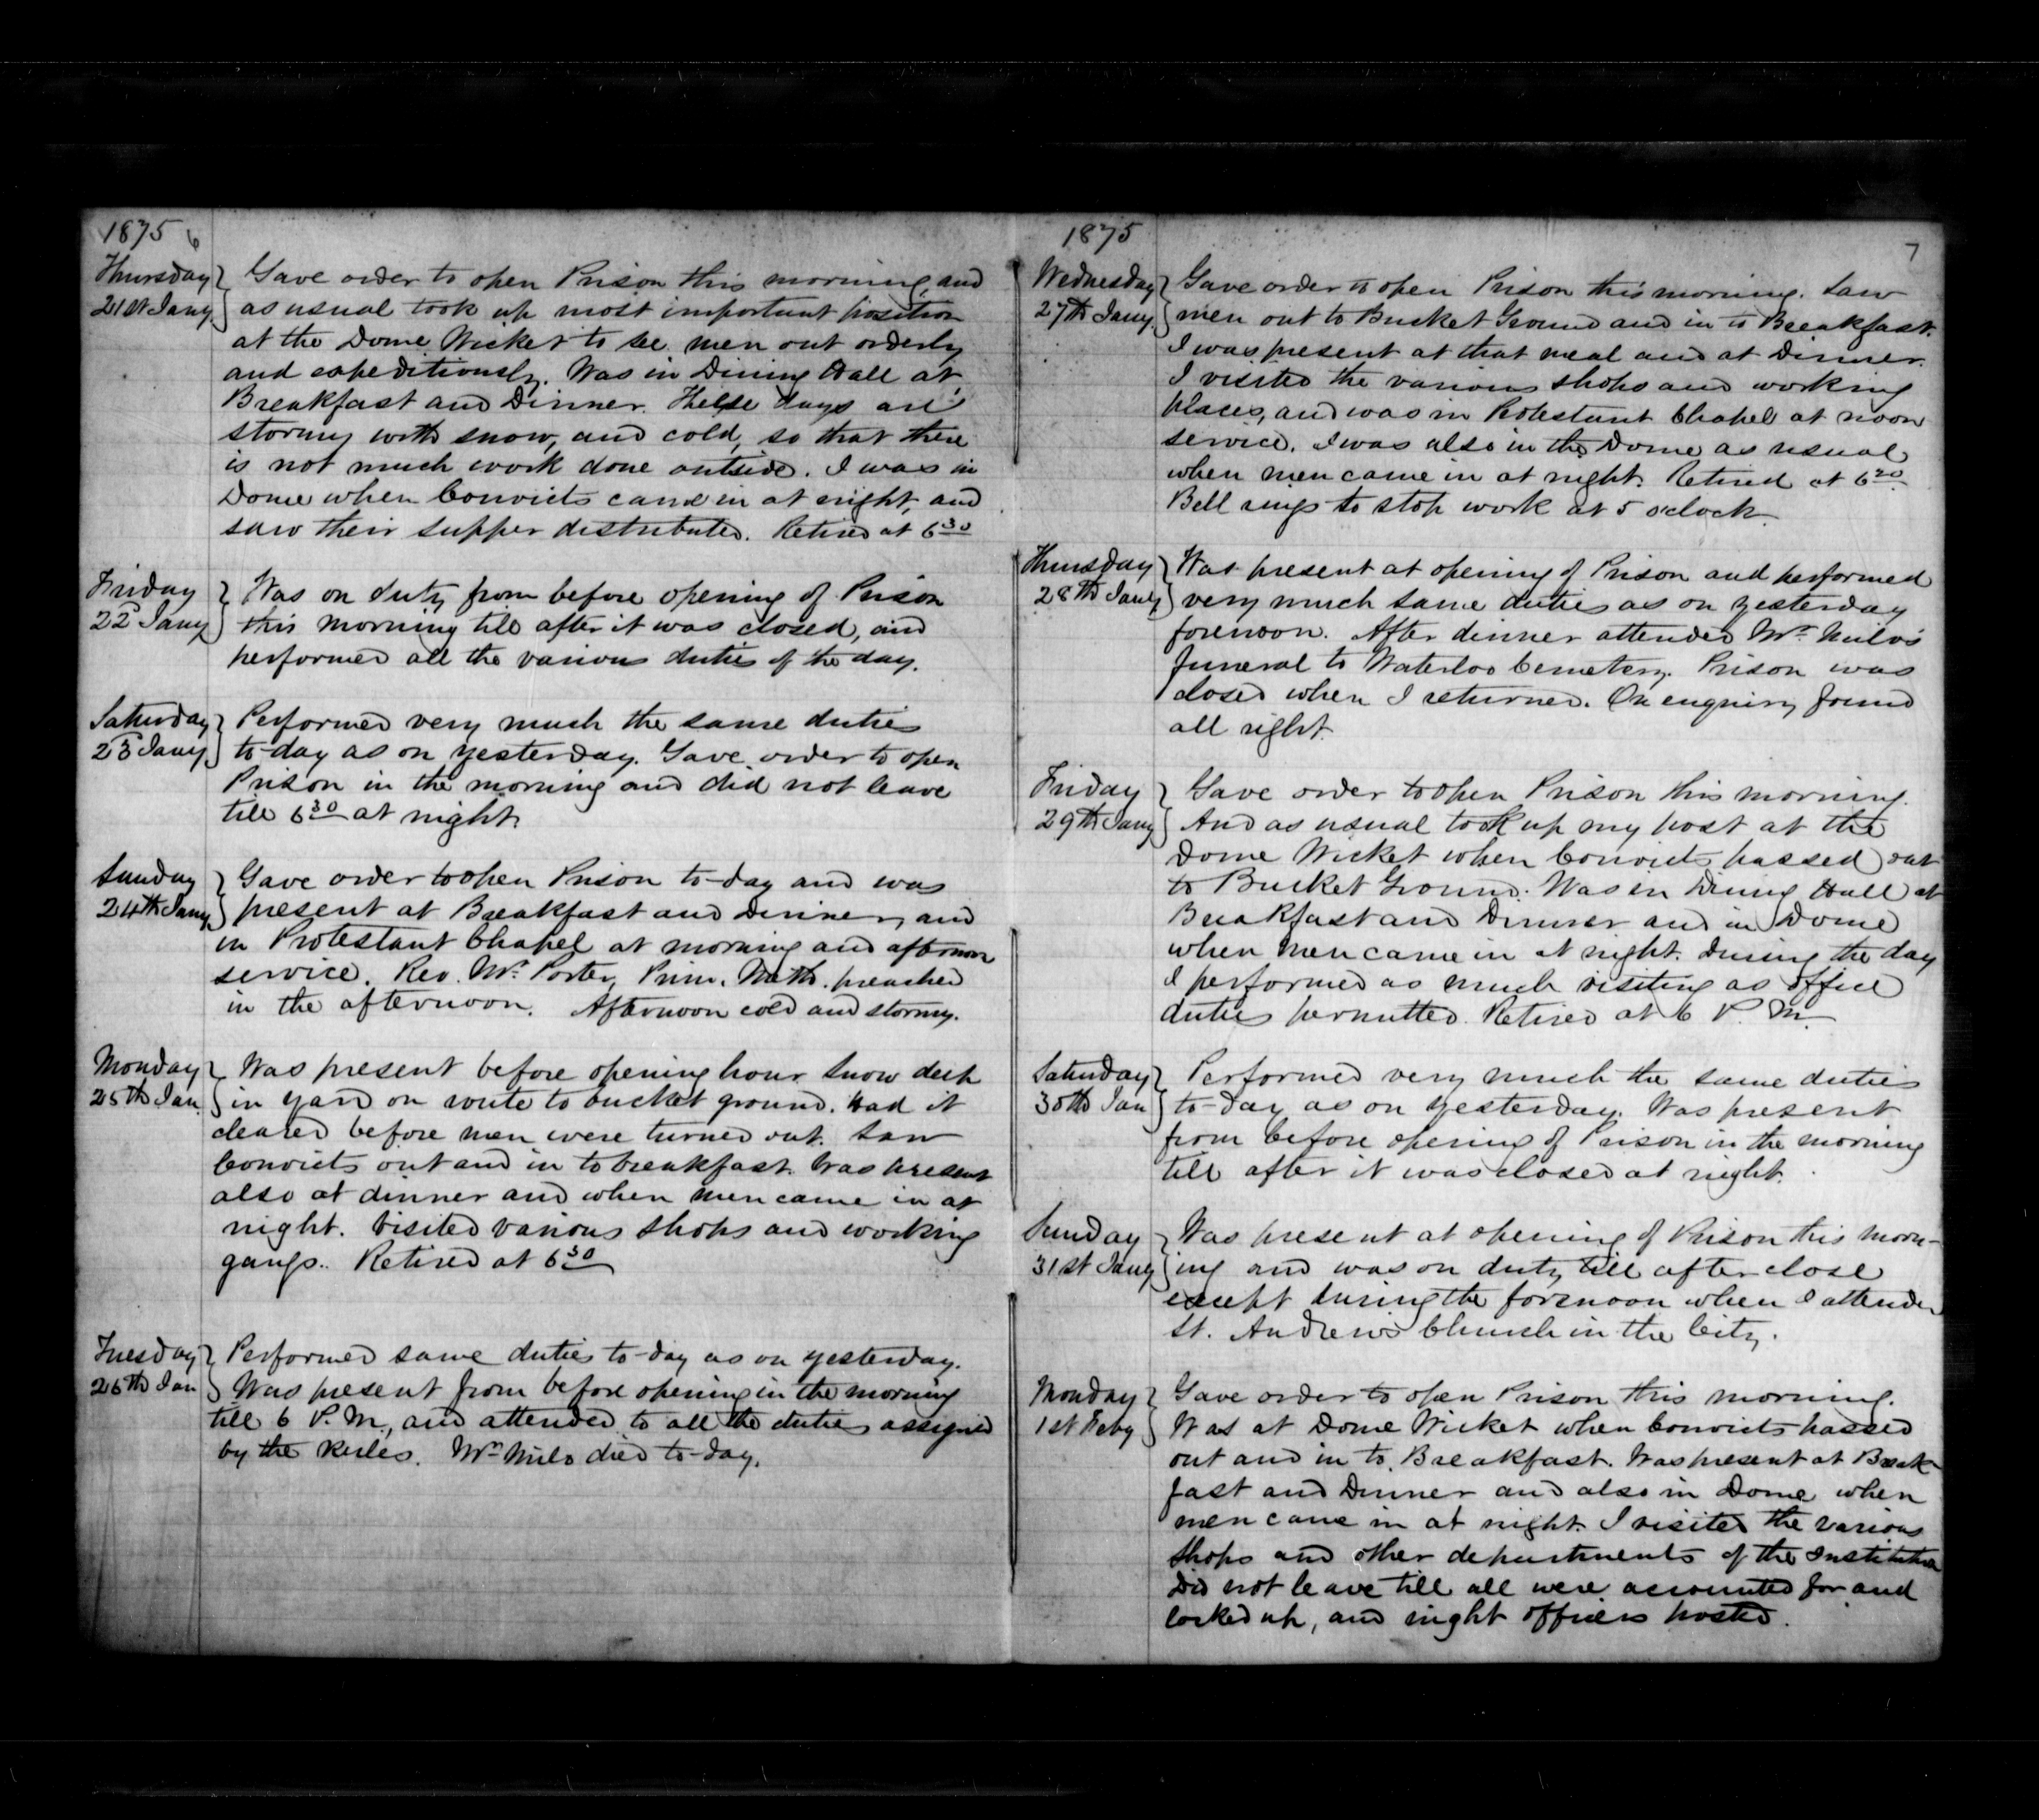 1875 6
Thursday
21st Jany
Gave order to open Prison this morning, and
as usual took up most important position
at the Dome Wicket to see men out orderly
and expeditiously. Was in Dining Hall at
Breakfast and Dinner. These days are
stormy with snow, and cold, so that there
is not much work done outside. I was in
Dome when Convicts came in at night, and
saw their supper distributed. Retired at 6 30
Friday
22d Jany
Was on duty from before opening of Prison
this morning till after it was closed, and
performed all the various duties of the day.
Saturday
23d Jany
Performed very much the same duties
to-day as on yesterday. Gave order to open
Prison in the morning and did not leave
till 6 30 at night.
Sunday
24th Jany
Gave order to open Prison to-day and was
present at Breakfast and Dinner, and
in Protestant Chapel at morning and afternoon
service. Rev. Mr. Porter, Prim. Meth. preached
in the afternoon. Afternoon cold and stormy.
Monday
25th Jan
Was present before opening hour Snow deep
in yard on route to bucket ground. Had it
cleared before men were turned out. Saw
Convicts out and in to breakfast. Was present
also at dinner and when men came in at
night. Visited various shops and working
gangs. Retired at 6 30
Tuesday
26th Jan
Performed same duties to-day as on yesterday.
Was present from before opening in the morning
till 6 P.M., and attended to all the duties assigned
by the Rules. Mr. Milo died to-day.
1875
7
Wednesday
27th Jany.
Gave order to open Prison this morning. Saw
men out to Bucket Ground and in to Breakfast.
I was present at that meal and at Dinner.
I visited the various shops and working
places, and was in Protestant Chapel at noon
service. I was also in the Dome as usual
when men came in at night. Retired at 6 20
Bell rings to stop work at 5 o'clock.
Thursday
28th Jany
Was present at opening of Prison and performed
very much same duties as on yesterday
forenoon. After dinner attended Mr. Milo's
funeral to Waterloo Cemetery. Prison was
closed when I returned. On enquiry found
all right.
Friday
29th Jany
Gave order to open Prison this morning.
And as usual took up my post at the
Dome Wicket when Convicts passed out
to Bucket Ground. Was in Dining Hall at
Breakfast and Dinner and in Dome
when men came in at night. During the day
I performed as much visiting as office
duties permitted. Retired at 6 P.M.
Saturday
30th Jan
Performed very much the same duties
to-day as on yesterday. Was present
from before opening of Prison in the morning
till after it was closed at night.
Sunday
31st Jany
Was present at opening of Prison this morn-
ing and was on duty till after close
except during the forenoon when I attended
St. Andrews Church in the City.
Monday
1st Feby
Gave order to open Prison this morning.
Was at Dome Wicket when Convicts passed
out and in to Breakfast. Was present at Break-
fast and Dinner and also in Dome when
men came in at night. I visited the various
shops and other departments of the Institution
Did not leave till all were accounted for and
locked up, and night officers posted.